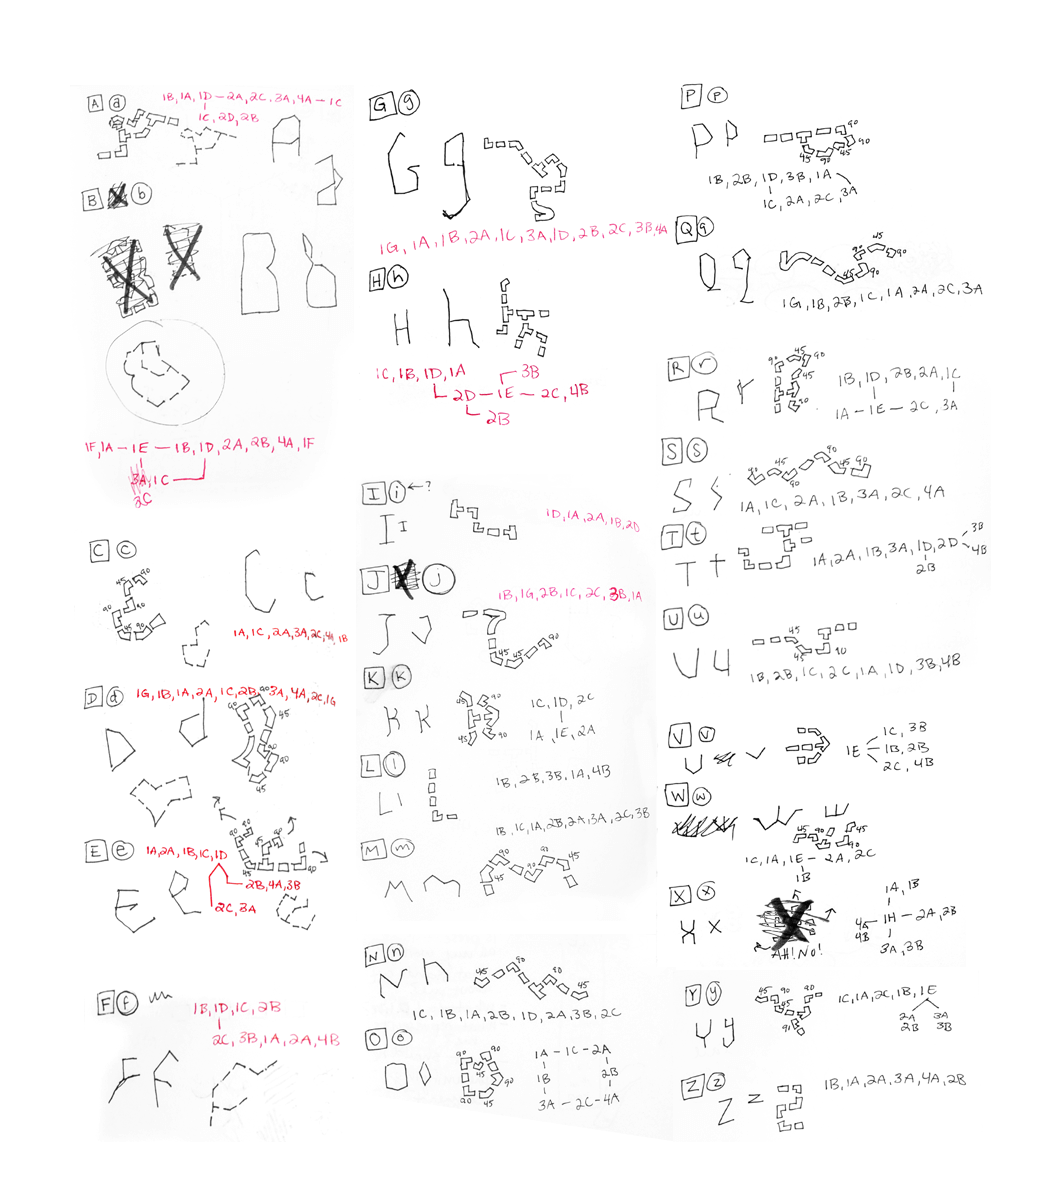 A a
1B, 1A, 1D – 2A, 2C, 3A, 4A – 1C
1C, 2D, 2B
A
a
B b
B b
1F, 1A – 1E – 1B, 1D, 2A, 2B, 4A, 1F
3A, 1C
2C
C c
45 90
90
45 90
C c
1A, 1C, 2A, 3A, 2C, 4A, 1B
D d
1G, 1B, 1A, 2A, 1C, 2B, 3A, 4A, 2C, 1G
90 90
45
90
90
45
D d
E e
1A, 2A, 1B, 1C, 1D
2B, 4A, 3B
2C, 3A
90 90
45 90
45 90
E e
F f
1B, 1D, 1C, 2B
2C, 3B, 1A, 2A, 4B
F f
G g
G g
1G, 1A, 1B, 2A, 1C, 3A, 1D, 2B, 2C, 3B, 4A
H h
H h
1C, 1B, 1D, 1A
3B
2D – 1E – 2C, 4B
2B
I i ← ?
I I
1D, 1A, 2A, 1B, 2D
J J
1B, 1G, 2B, 1C, 2C, 3B, 1A
J J
45 45 90
K K
K K
90 90
45 90
1C, 1D, 2C
1A, 1E, 2A
L l
L l
1B, 2B, 3B, 1A, 4B
M m
1B, 1C, 1A, 2B, 2A, 3A, 2C, 3B
M m
90 90 45
45 90
N n
N n
45 90 90 45
90
1C, 1B, 1A, 2B, 1D, 2A, 3B, 2C
O o
O o
90 90
45
90
90 45
1A – 1C – 2A
1B 2B
3A – 2C – 4A
P p
P P
90
45 90 45 90
1B, 2B, 1D, 3B, 1A
1C, 2A, 2C, 3A
Q q
Q q
45
90 90
45 90
1G, 1B, 2B, 1C, 1A, 2A, 2C, 3A
R r
R r
90 45 90
45
90
1B, 1D, 2B, 2A, 1C
1A – 1E – 2C, 3A
S s
S S
90 45 90 45 90
90
1A, 1C, 2A, 1B, 3A, 2C, 4A
T t
T t
1A, 2A, 1B, 3A, 1D, 2D
3B
4B
2B
U u
U u
45
45 90
1B, 2B, 1C, 2C, 1A, 1D, 3B, 4B
V v
V v
1E
1C, 3B
1B, 2B
2C, 4B
W w
W w
45 90 45
90
1C, 1A, 1E – 2A, 2C
1B
X x
X x
AH! NO!
1A, 1B
4A
4B
1H – 2A, 2B
3A, 3B
Y y
Y y
45 90 90
45
90
1C, 1A, 2C, 1B, 1E
2A 3A
2B 3B
Z z
Z z
1B, 1A, 2A, 3A, 4A, 2B